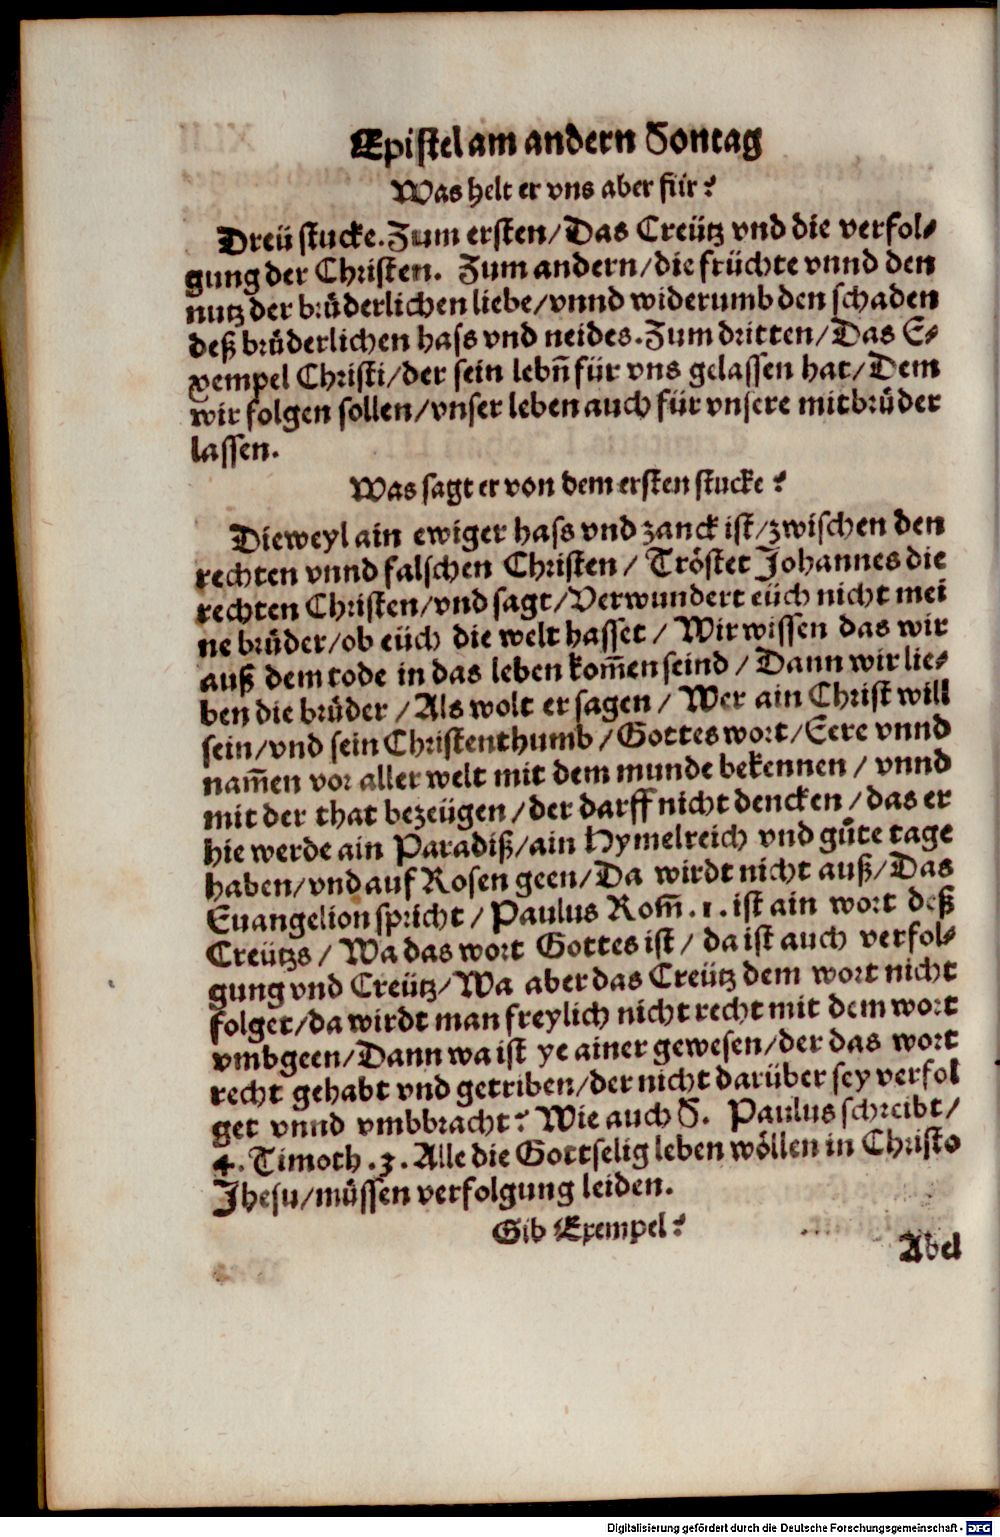 Epistel am andern Sontag
Was helt er vns aber für?
Dreü stucke. Zum ersten/ Das Creütz vnd die verfol-
gung der Christen. Zum andern/ die früchte vnnd den
nutz der brůderlichen liebe/ vnnd widerumb den schaden
deß brůderlichen hass vnd neides. Zum dritten/ Das E-
xempel Christi/ der sein lebn̄ für vns gelassen hat/ Dem
wir folgen sollen/ vnser leben auch für vnsere mitbrůder
lassen.
Was sagt er von dem ersten stucke?
Dieweyl ain ewiger hass vnd zanck ist/ zwischen den
rechten vnnd falschen Christen/ Tröstet Johannes die
rechten Christen/ vnd sagt/ Verwundert eüch nicht mei
ne brůder/ ob eüch die welt hasset/ Wir wissen das wir
auß dem tode in das leben kom̄en seind/ Dann wir lie-
ben die brůder/ Als wolt er sagen/ Wer ain Christ will
sein/ vnd sein Christenthumb/ Gottes wort/ Eere vnnd
nam̄en vor aller welt mit dem munde bekennen/ vnnd
mit der that bezeügen/ der darff nicht dencken/ das er
hie werde ain Paradiß/ ain Hymelreich vnd gůte tage
haben/ vnd auf Rosen geen/ Da wirdt nicht auß/ Das
Euangelion spricht/ Paulus Rom̄. 1. ist ain wort deß
Creützs/ Wa das wort Gottes ist/ da ist auch verfol-
gung vnd Creütz/ Wa aber das Creütz dem wort nicht
folget/ da wirdt man freylich nicht recht mit dem wort
vmbgeen/ Dann wa ist ye ainer gewesen/ der das wort
recht gehabt vnd getriben/ der nicht darüber sey verfol
get vnnd vmbbracht? Wie auch S. Paulus schreibt/
4. Timoth. 3. Alle die Gottselig leben wöllen in Christo
Jhesu/ müssen verfolgung leiden.
Gib Exempel?
Abel
Digitalisierung gefördert durch die Deutsche Forschungsgemeinschaft - DFG